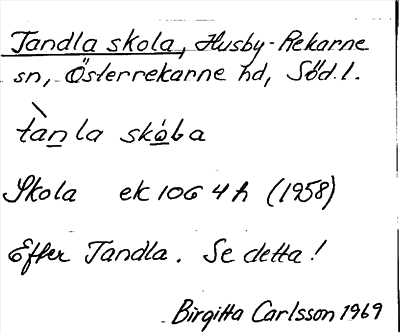 Tandla skola, Husby-Rekarne
sn, Österrekarne hd, Söd.l.
tàn̲la skȯ̲ba
Skola ek 10G 4h (1958)
Efter Tandla. Se detta!
Birgitta Carlsson 1969